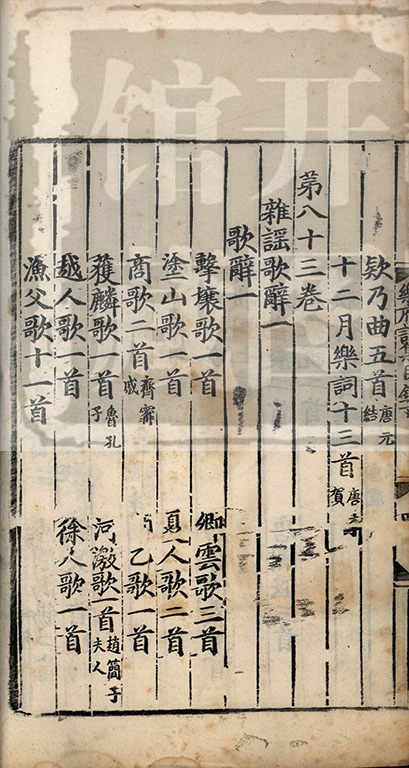 欵乃曲五首唐元結
十二月樂詞十三首唐
賀
第八十三卷
雜謡歌辭一
歌辭一
擊壤歌一首 卿雲歌三首
塗山歌一首 夏人歌二首
商歌二首齊甯戚 乙歌一首
獲麟歌一首魯孔子 河激歌一首趙簡子夫人
越人歌一首 徐人歌一首
漁父歌十一首
开
馆